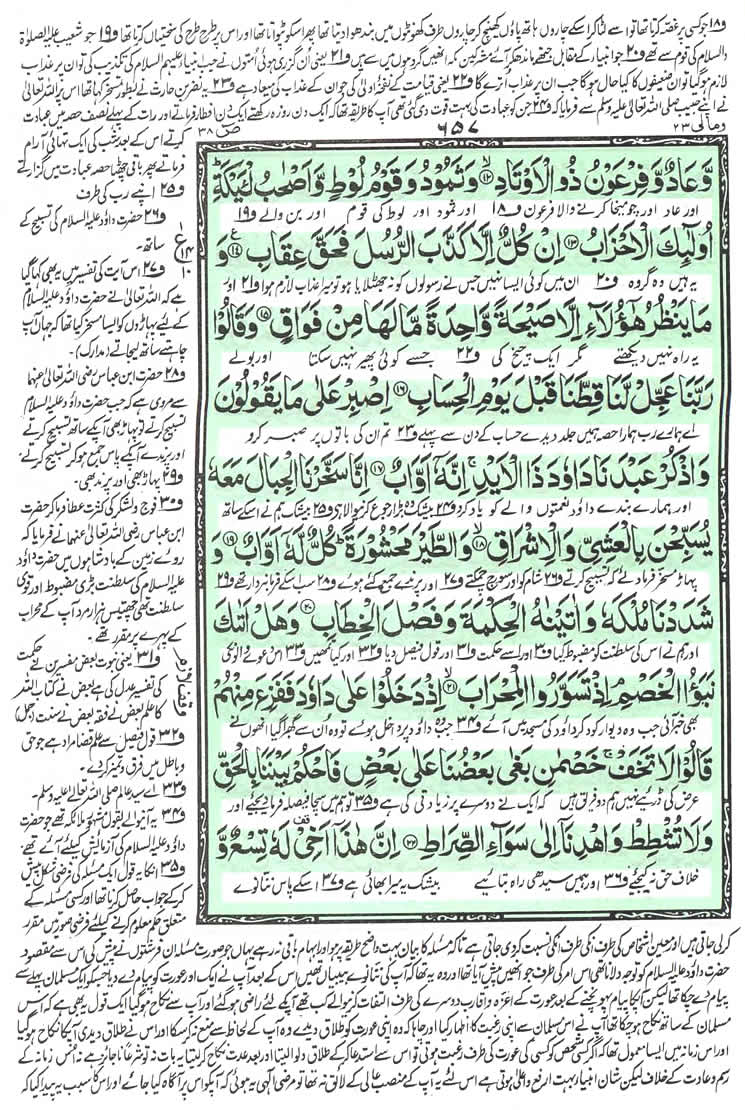 و۱۸ جو کسی پر غصہ کرتا تھا تو اسے لٹا کر اسکے چاروں ہاتھ پاؤں کھینچ کر چاروں طرف کھونٹوں میں بندھوا دیتا تھا پھر اسکو پٹواتا تھا اور اس پر طرح طرح کی سختیاں کرتا تھا و۱۹ جو شعیب علیہ الصلوٰۃ
والسلام کی قوم سے تھے و۲۰ جو انبیاء کے مقابل جتھے باندھ کر آئے مشرکین مکہ انہیں گروہوں میں سے ہیں و۲۱ یعنی ان گزری ہوئی امتوں نے جب انبیاء علیہم السلام کی تکذیب کی تو ان پر عذاب
لازم ہو گیا تو ان ضعیفوں کا کیا حال ہوگا جب ان پر عذاب اُترے گا و۲۲ یعنی قیامت کے نفخۂ اولیٰ کی جو ان کے عذاب کی میعاد ہے و۲۳ یہ نضر بن حارث نے بطور تمسخر کہا تھا اس پر اللہ تعالیٰ
نے اپنے حبیب صلی اللہ تعالیٰ علیہ وسلم سے فرمایا کہ و۲۴ جن کو عبادت کی بہت قوت دی گئی تھی آپ کا طریقہ تھا کہ ایک دن روزہ رکھتے ایک دن افطار فرماتے اور رات کے پہلے نصف حصہ میں عبادت
ومالی ۲۳
۶۵۷
صٓ ۳۸
وَّعَادٌ وَّفِرْعَوْنُ ذُو الْاَوْتَادِ ۙ۱۲ وَثَمُوْدُ وَقَوْمُ لُوْطٍ وَّاَصْحٰبُ لْـَٔيْكَةِ ؕ
اور عاد اور چومیخا کرنے والا فرعون و۱۸ اور ثمود اور لوط کی قوم اور بن والے و۱۹
اُولٰٓئِكَ الْاَحْزَابُ ۱۳ اِنْ كُلٌّ اِلَّا كَذَّبَ الرُّسُلَ فَحَقَّ عِقَابِ ۱۴ وَ
یہ ہیں وہ گروہ و۲۰ ان میں کوئی ایسا نہیں جس نے رسولوں کو نہ جھٹلایا ہو تو میرا عذاب لازم ہوا و۲۱ اور
مَا يَنْظُرُ هٰٓؤُلَآءِ اِلَّا صَيْحَةً وَّاحِدَةً مَّا لَهَا مِنْ فَوَاقٍ ۱۵ وَقَالُوْا
یہ راہ نہیں دیکھتے مگر ایک چیخ کی و۲۲ جسے کوئی پھیر نہیں سکتا اور بولے
رَبَّنَا عَجِّلْ لَّنَا قِطَّنَا قَبْلَ يَوْمِ الْحِسَابِ ۱۶ اِصْبِرْ عَلٰى مَا يَقُوْلُوْنَ
اے ہمارے رب ہمارا حصہ ہمیں جلد دیدے حساب کے دن سے پہلے و۲۳ تم ان کی باتوں پر صبر کرو
وَاذْكُرْ عَبْدَنَا دَاوٗدَ ذَا الْاَيْدِ ۚ اِنَّهٗٓ اَوَّابٌ ۱۷ اِنَّا سَخَّرْنَا الْجِبَالَ مَعَهٗ
اور ہمارے بندے داؤد نعمتوں والے کو یاد کرو و۲۴ بیشک وہ بڑا رجوع کرنیوالا ہی و۲۵ بیشک ہم نے اسکے ساتھ
يُسَبِّحْنَ بِالْعَشِيِّ وَالْاِشْرَاقِ ۙ۱۸ وَالطَّيْرَ مَحْشُوْرَةً ؕ كُلٌّ لَّهٗٓ اَوَّابٌ ۱۹ وَ
پہاڑ مسخر فرما دئے کہ تسبیح کرتے و۲۶ شام کو اور سورج چمکتے و۲۷ اور پرندے جمع کئے ہوئے و۲۸ سب اسکے فرمانبردار تھے و۲۹
شَدَدْنَا مُلْكَهٗ وَاٰتَيْنٰهُ الْحِكْمَةَ وَفَصْلَ الْخِطَابِ ۲۰ وَهَلْ اَتٰىكَ
اور ہم نے اس کی سلطنت کو مضبوط کیا و۳۰ اور اسے حکمت و۳۱ اور قول فیصل دیا و۳۲ اور کیا تمھیں و۳۳ اس دعوے والوں کی
نَبَؤُا الْخَصْمِ ۘ اِذْ تَسَوَّرُوا الْمِحْرَابَ ۙ۲۱ اِذْ دَخَلُوْا عَلٰى دَاوٗدَ فَفَزِعَ مِنْهُمْ
بھی خبر آئی جب وہ دیوار کود کر داؤد کی مسجد میں آئے و۳۴ جب وہ داؤد پر داخل ہوئے تو وہ اُن سے گھبرا گیا انھوں نے
قَالُوْا لَا تَخَفْ ۚ خَصْمٰنِ بَغٰى بَعْضُنَا عَلٰى بَعْضٍ فَاحْكُمْ بَيْنَنَا بِالْحَقِّ
عرض کی ڈریئے نہیں ہم دو فریق ہیں کہ ایک نے دوسرے پر زیادتی کی ہے و۳۵ تو ہم میں سچا فیصلہ فرما دیجئے اور
وَلَا تُشْطِطْ وَاهْدِنَآ اِلٰى سَوَآءِ الصِّرَاطِ ۲۲ اِنَّ هٰذَآ اَخِيْ ۫ لَهٗ تِسْعٌ وَّ
خلاف حق نہ کیجئے و۳۶ اور ہمیں سیدھی راہ بتائیے بیشک یہ میرا بھائی ہے و۳۷ اسکے پاس ننانوے
کرتے اس کے بعد شب کی ایک تہائی آرام
فرماتے پھر باقی چھٹا حصہ عبادت میں گزارتے
و۲۵ اپنے رب کی طرف
و۲۶ حضرت داؤد علیہ السلام کی تسبیح کے
ساتھ۔
و۲۷ اس آیت کی تفسیر میں یہ بھی کہا گیا
ہے کہ اللہ تعالیٰ نے حضرت داؤد علیہ السلام
کے لیے پہاڑوں کو ایسا مسخر کیا تھا کہ جہاں آپ
چاہتے ساتھ لیجاتے (مدارک)۔
و۲۸ حضرت ابن عباس رضی اللہ تعالیٰ عنہما
سے مروی ہے کہ جب حضرت داؤد علیہ السلام
تسبیح کرتے تو پہاڑ بھی آپکے ساتھ تسبیح کرتے
اور پرندے آپکے پاس جمع ہو کر تسبیح کرتے
و۲۹ پہاڑ بھی اور پرند بھی۔
و۳۰ فوج و لشکر کی کثرت عطا فرما کر حضرت
ابن عباس رضی اللہ تعالیٰ عنہما نے فرمایا کہ
روئے زمین کے بادشاہوں میں حضرت داؤد
علیہ السلام کی سلطنت بڑی مضبوط اور قوی
سلطنت تھی چھتیس ہزار مرد آپ کے محراب
کے پہرے پر مقرر تھے۔
و۳۱ یعنی نبوت بعض مفسرین نے حکمت
کی تفسیر عدل کی ہے بعض نے کتاب اللہ
کا علم بعض نے فقہ بعض نے سنت (جمل)
و۳۲ قول فیصل سے علم قضا مراد ہے جو حق
و باطل میں فرق و تمیز کردے۔
و۳۳ اے سید عالم صلی اللہ تعالیٰ علیہ وسلم۔
و۳۴ یہ آنیوالے بقول مشہور ملائکہ تھے جو حضرت
داؤد علیہ السلام کی آزمائش کیلئے آئے تھے
و۳۵ انکا یہ قول ایک مسئلہ کی فرضی شکل پیش
کرکے جواب حاصل کرنا تھا اور کسی مسئلہ کے
متعلق حکم معلوم کرنے کیلئے فرضی صورتیں مقرر
کرلی جاتی ہیں اور معین اشخاص کی طرف انکی نسبت کردی جاتی ہے تاکہ مسئلہ کا بیان بہت واضح طریقہ پر ہو اور ابہام باقی نہ رہے یہاں جو صورت مسئلہ ان فرشتوں نے پیش کی اس سے مقصود
حضرت داؤد علیہ السلام کو توجہ دلانا تھی اس امر کی طرف جو انھیں پیش آیا تھا اور وہ یہ تھا کہ آپ کی ننانوے بیبیاں تھیں اس کے بعد آپ نے ایک اور عورت کو پیام دے دیا جسکو ایک مسلمان پہلے سے
پیام دے چکا تھا لیکن آپکا پیام پہونچنے کے بعد عورت کے اعزہ و اقارب دوسرے کی طرف التفات کرنیوالے کب تھے آپکے لئے راضی ہو گئے اور آپ سے نکاح ہو گیا ایک قول یہ بھی ہے کہ اس
مسلمان کے ساتھ نکاح ہو چکا تھا آپ نے اس مسلمان سے اپنی رغبت کا اظہار کیا اور چاہا کہ وہ اپنی عورت کو طلاق دیدے وہ آپ کے لحاظ سے منع نہ کر سکا اور اس نے طلاق دیدی آپکا نکاح ہو گیا
اور اس زمانہ میں ایسا معمول تھا کہ اگر کسی شخص کو کسی کی عورت کی طرف رغبت ہوتی تو اس سے استدعا کرکے طلاق دلوا لیتا اور بعد عدت نکاح کر لیتا یہ بات نہ تو شرعًا ناجائز ہے نہ اُس زمانہ کے
رسم و عادت کے خلاف لیکن شان انبیاء بہت ارفع و اعلیٰ ہوتی ہے اس لئے یہ آپ کے منصب عالی کے لائق نہ تھا تو مرضی الٰہی یہ ہوئی کہ آپکو اس پر آگاہ کیا جائے اور اس کا سبب یہ پیدا کیا کہ